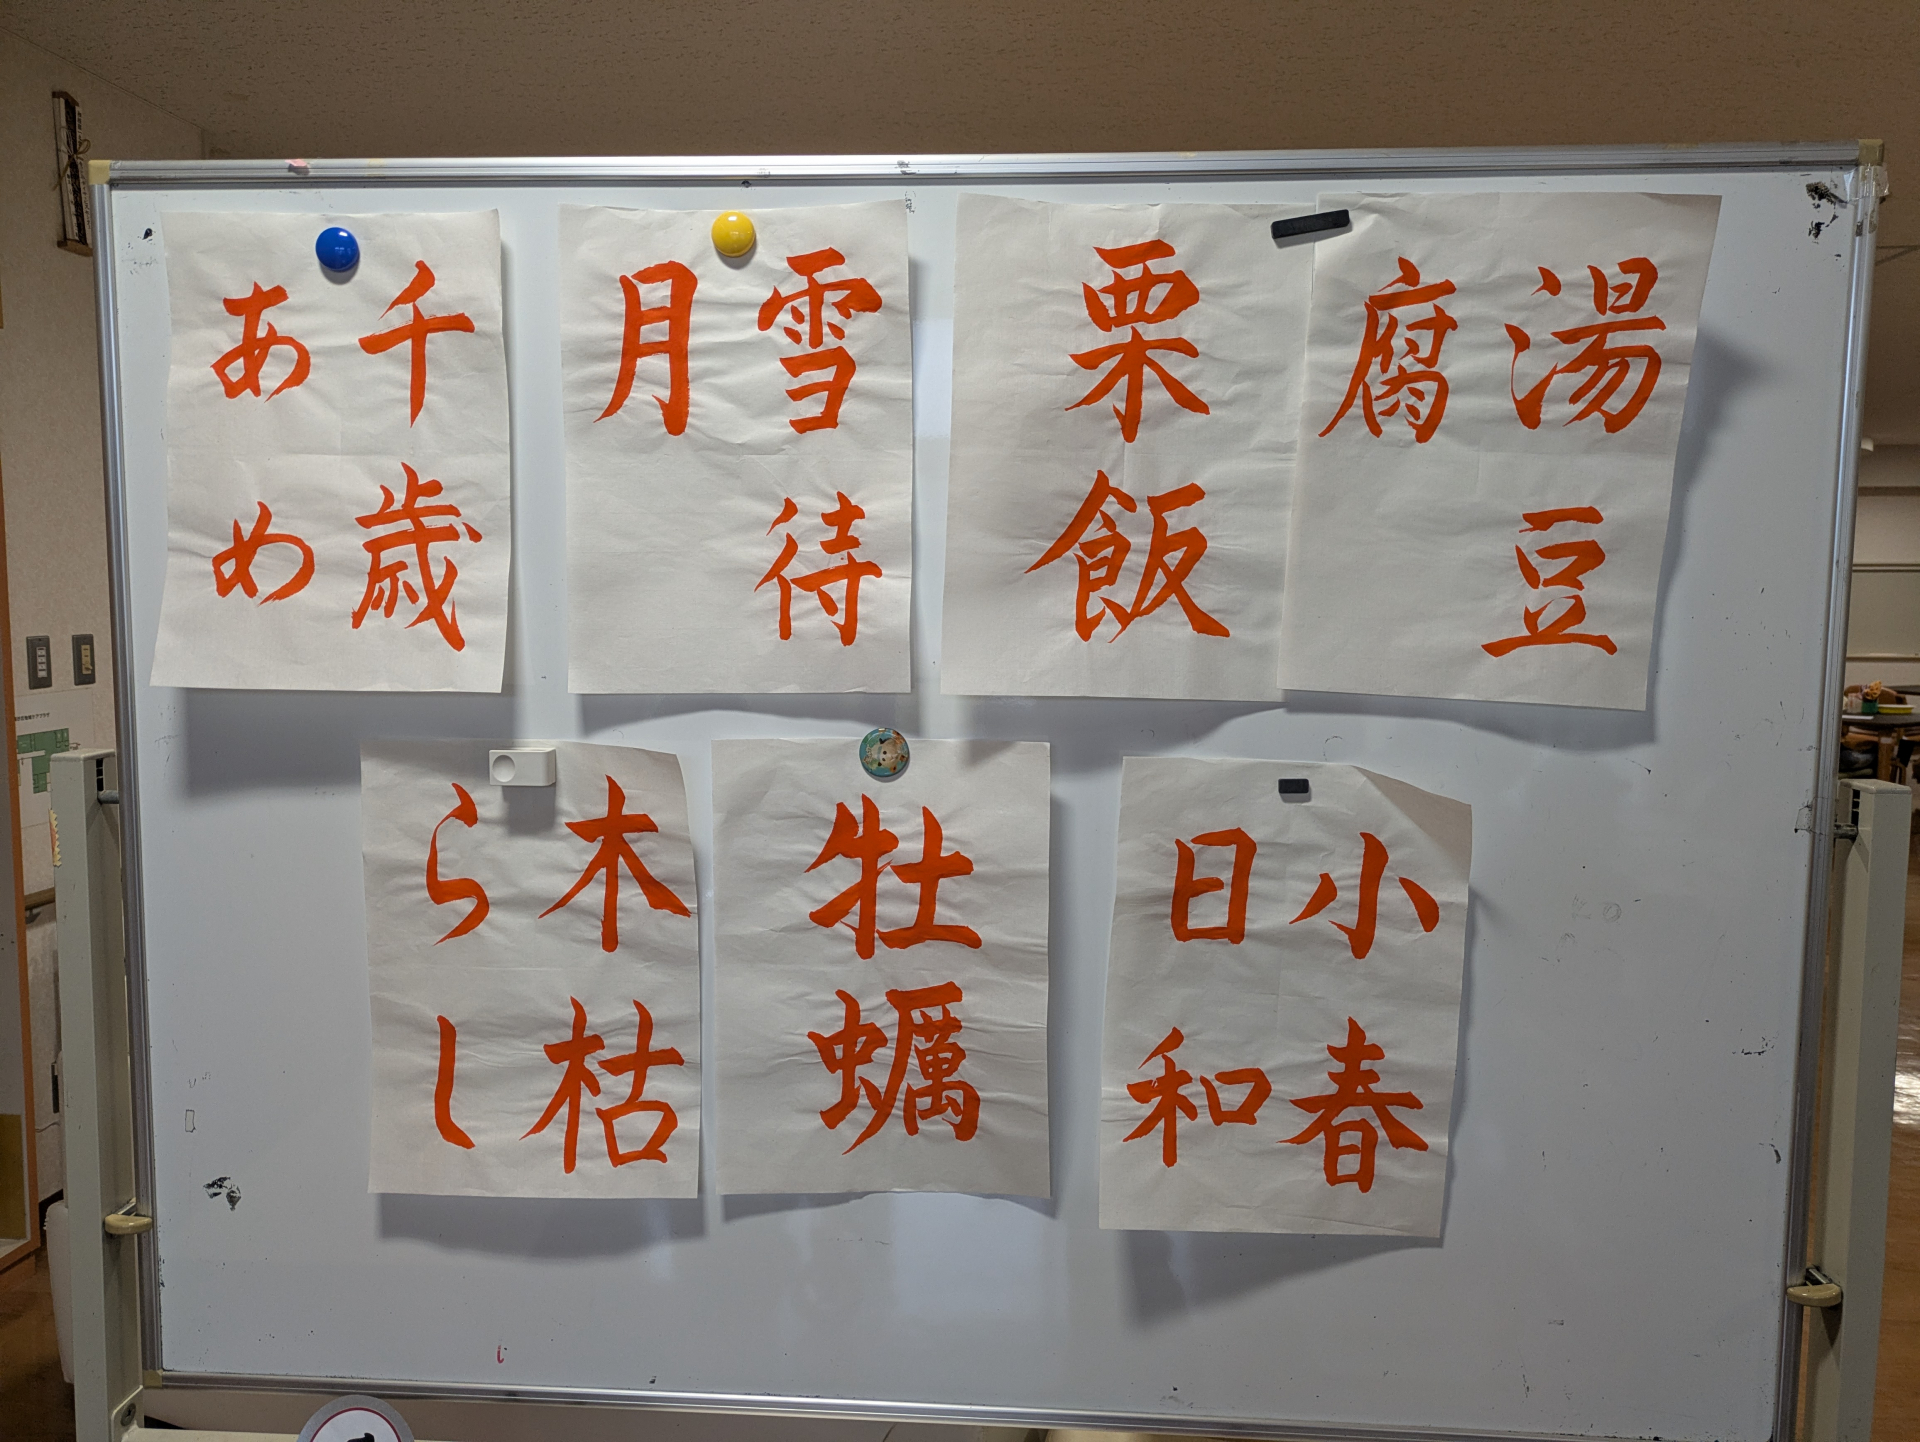 湯豆腐
栗飯
雪待月
千歳あめ
小春日和
牡蠣
木枯らし